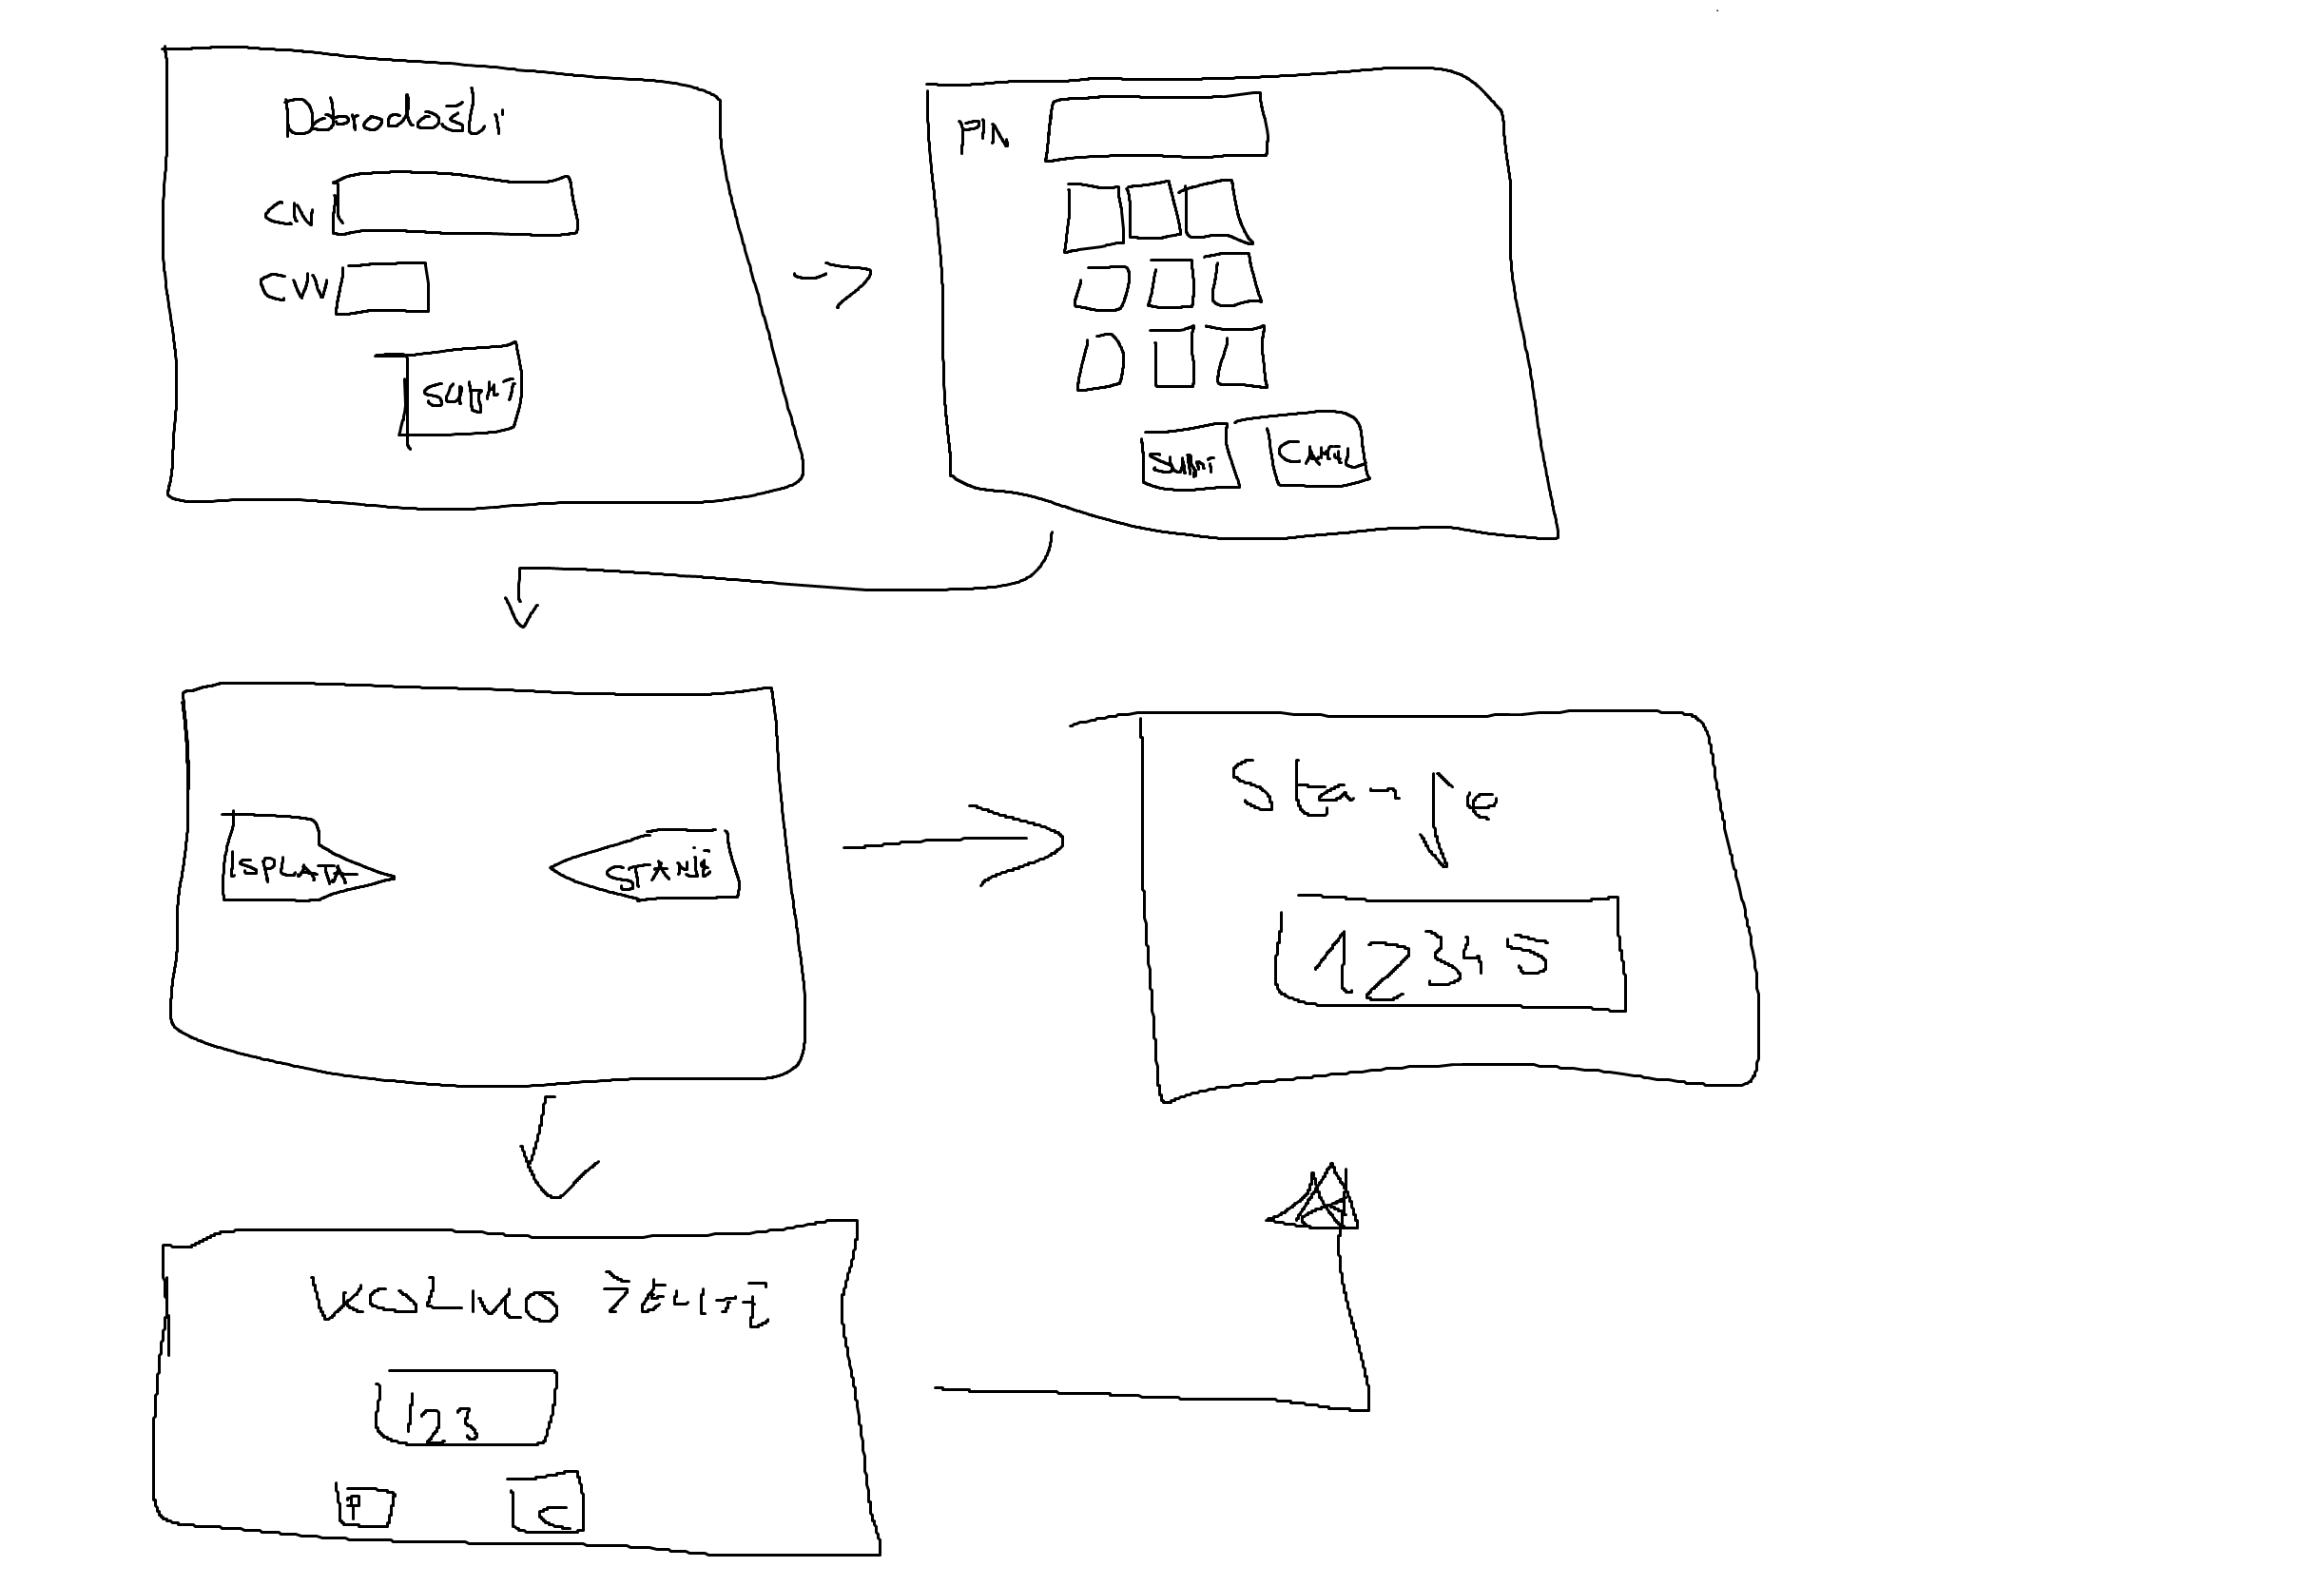 Dobrodošli
CN
CVV
SUBMIT
PIN
SUBMIT
CANCEL
ISPLATA
STANJE
Stanje
12345
KOLIKO ŽELITE
123
P
C